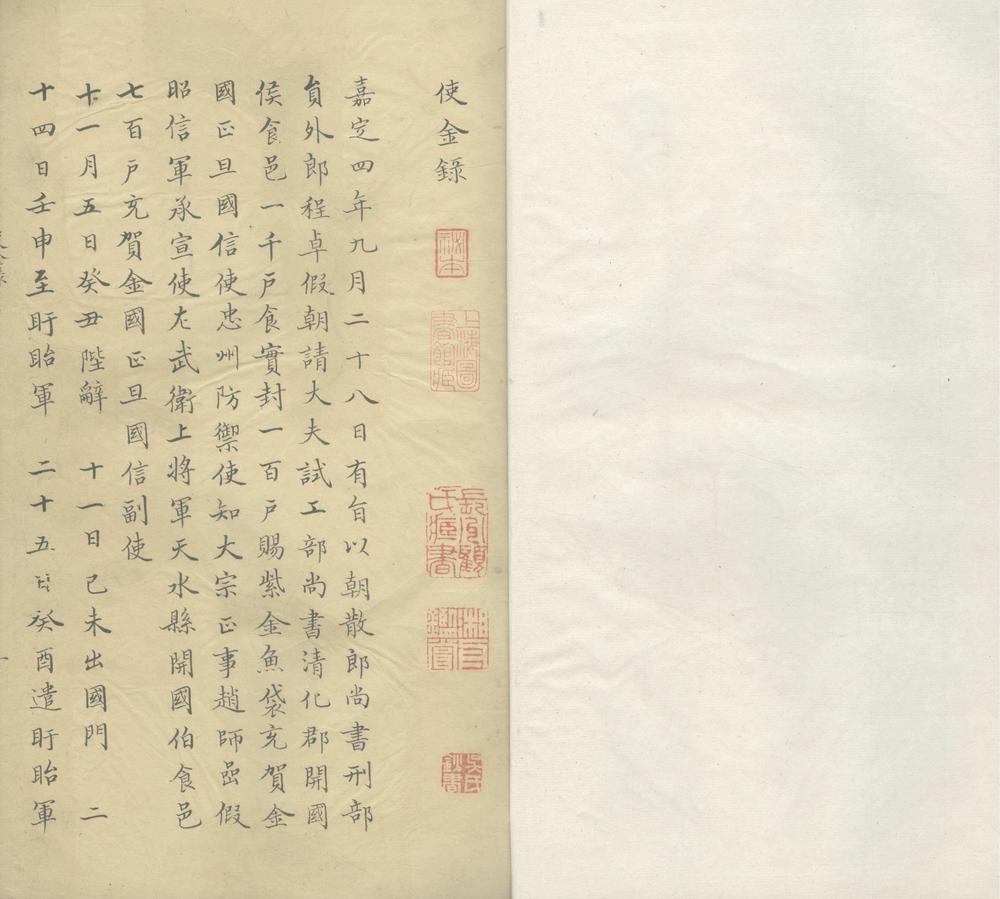 使金錄
嘉定四年九月二十八日有旨以朝散郎尚書刑部
員外郎程卓假朝請大夫試工部尚書清化郡開國
侯食邑一千戶食實封一百戶賜紫金魚袋充賀金
國正旦國信使忠州防禦使知大宗正事趙師嵒假
昭信軍承宣使左武衛上將軍天水縣開國伯食邑
七百戶充賀金國正旦國信副使
十一月五日癸丑陛辭 十一日己未出國門 二
十四日壬申至盱眙軍 二十五日癸酉遣盱眙軍
上海圖書館藏
吳氏鈔書